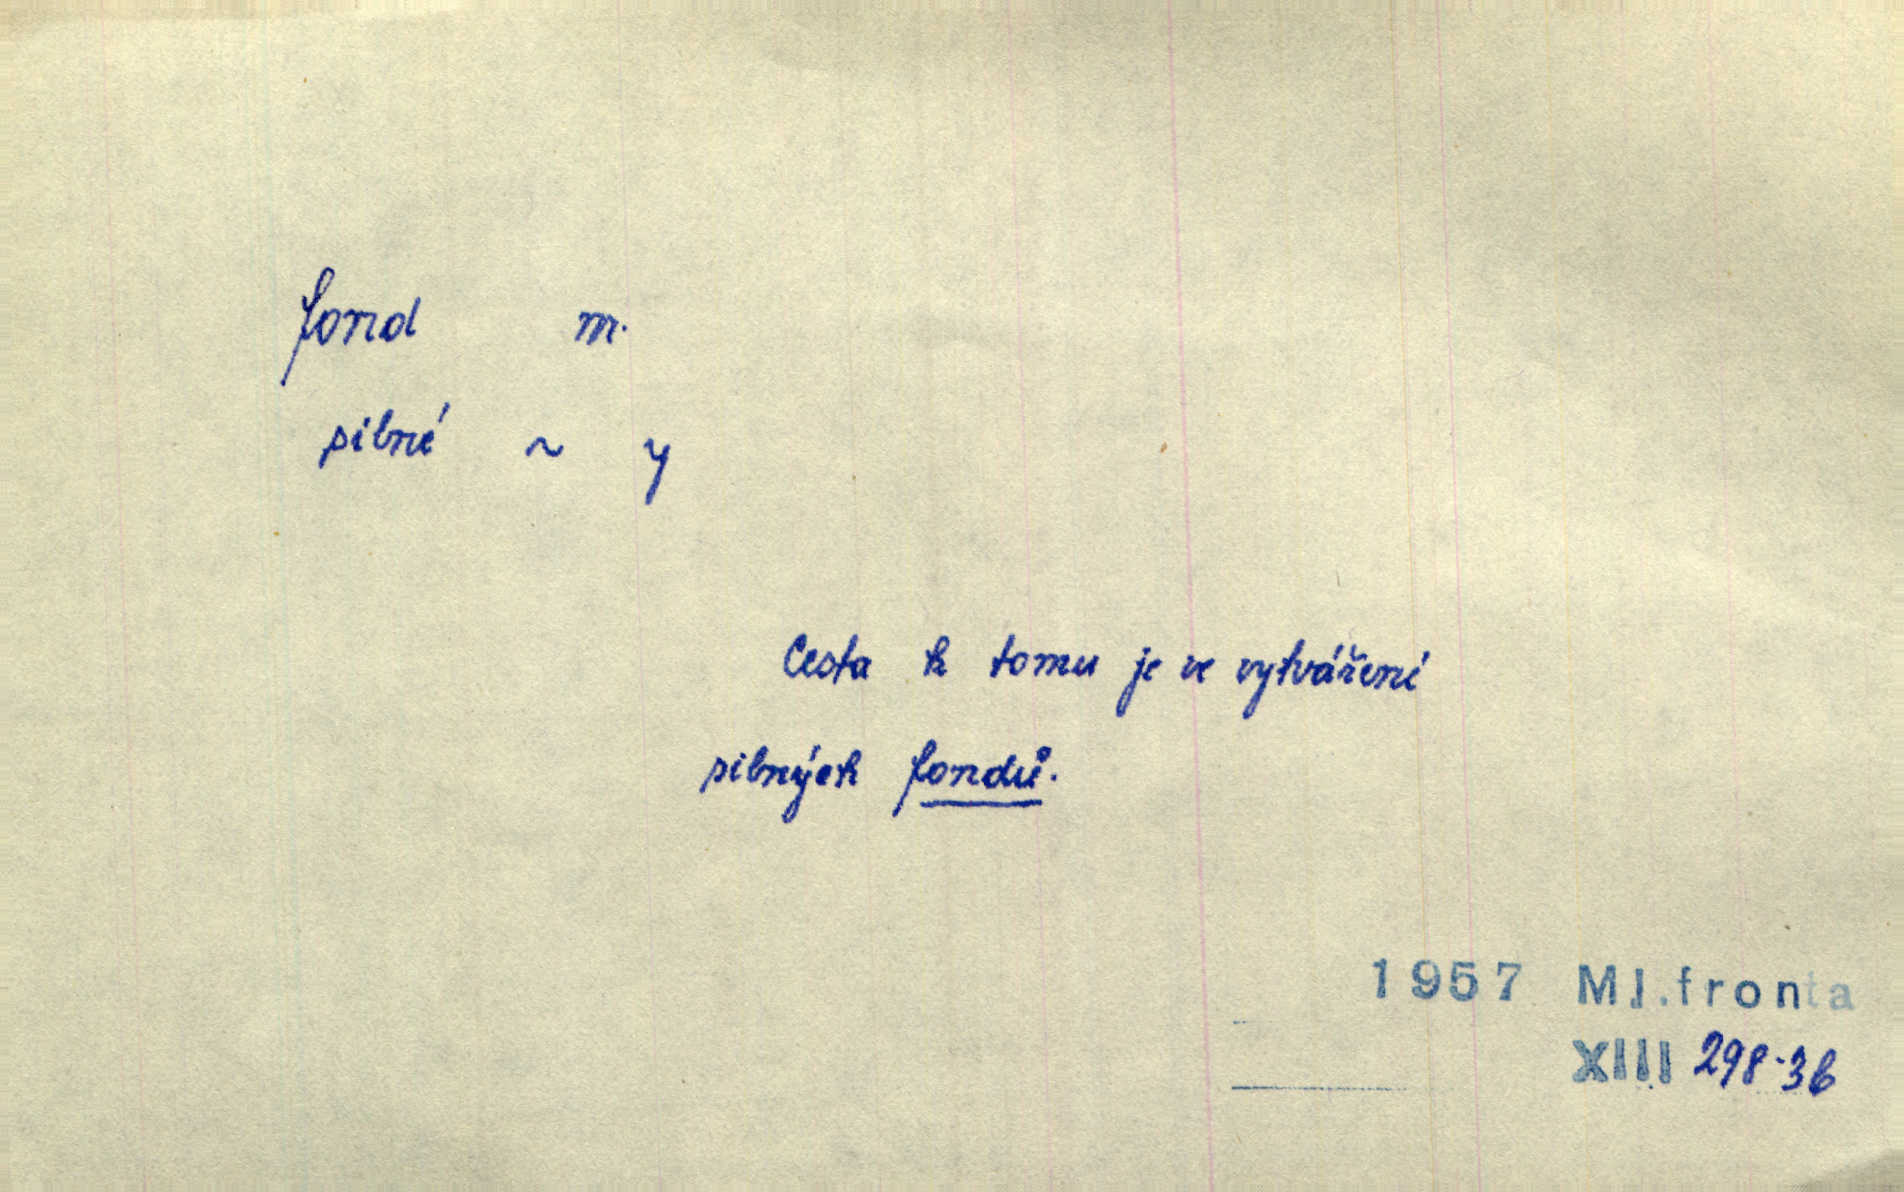 fond m.
silné ~ y
Cesta k tomu je ve vytváření
silných fondů.
1957 Ml.fronta
XIII 298-3b